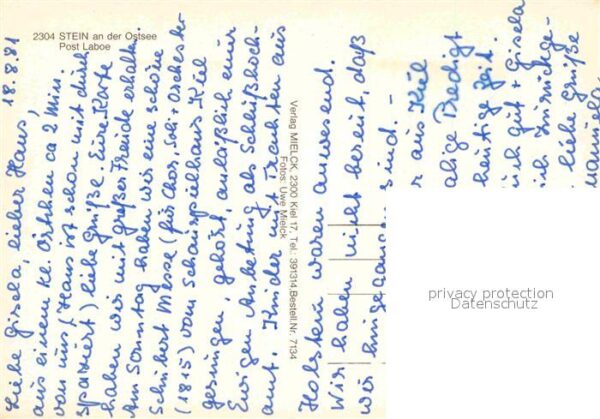 2304 STEIN an der Ostsee
Post Laboe
18.8.81
Liebe Gisela, lieber Hans,
aus einem kl. Örtchen ca 2 Min.
von uns (Hans ist schon mit durch
spaziert) liebe Grüße. Eure Karte
haben wir mit großer Freude erhalten.
Am Sonntag haben wir eine schöne
Schubert Messe (für Chor, Soli + Orchester
(1815) vom Schauspielhaus Kiel
gesungen, gehört, anläßlich einer
Ewigen Anbetung als Schlußhoch-
amt. Kinder mit Trachten aus
Verlag MIELCK, 2300 Kiel 17, Tel.: 391314, Bestell.Nr. 7134
Fotos: Uwe Mielck
Holstein waren anwesend.
Wir haben nicht bereut, daß
wir hingegangen sind. -
aus Kiel
Predigt
heutige Zeit.
ich gut + Gisela
ich zurückge-
liebe Grüße
privacy protection
Datenschutz